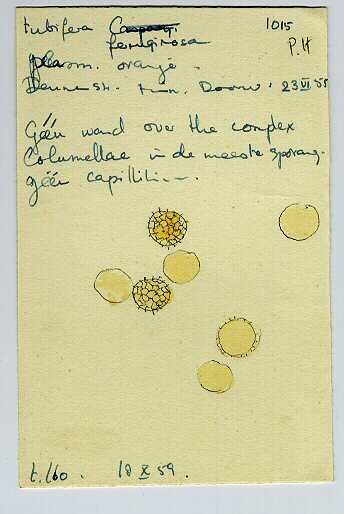 tubifera
1015
ferruginosa
P.H
plasm. oranje.
Dennesh. Doorn. 23 VI 55
Géén wand over the complex
Columellae in de meeste sporang.
géén capillitium.
t. 160. 18 X 59.